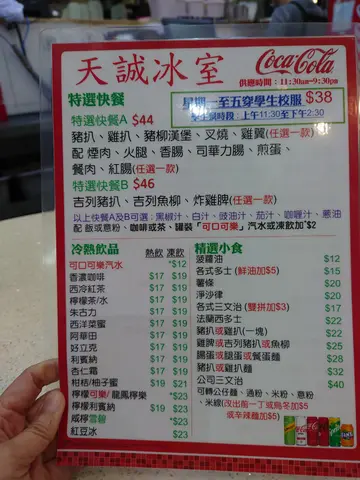 天誠冰室
Coca-Cola
供應時間：11:30am-9:30pm
特選快餐
星期一至五穿學生校服 $38
上午11:30至下午2:30
特選快餐A $44
豬扒、雞扒、豬柳漢堡、叉燒、雞翼(任選一款)
配 煙肉、火腿、香腸、司華力腸、煎蛋、
餐肉、紅腸(任選一款)
特選快餐B $46
吉列豬扒、吉列魚柳、炸雞脾(任選一款)
以上快餐A及B可選：黑椒汁、白汁、豉油汁、茄汁、咖喱汁、蔥油
配 飯或意粉、咖啡或茶、罐裝「可口可樂」汽水或凍飲加*$2
冷熱飲品 熱飲 凍飲
可口可樂汽水 *$12
香濃咖啡 $17 $19
西冷紅茶 $17 $19
檸檬茶/水 $17 $19
朱古力 $17 $19
西洋菜蜜 $17 $19
阿華田 $17 $19
好立克 $17 $19
利賓納 $17 $19
杏仁霜 $17 $19
柑桔/柚子蜜 $19 $21
檸檬可樂/龍鳳檸樂 *$23
檸檬利賓納 $19 $23
咸檸雪碧 *$23
紅豆冰 *$23
精選小食
菠蘿油 $12
各式多士(鮮油加$5) $15
薯條 $20
淨沙律 $20
各式三文治(雙拼加$3) $17
法蘭西多士 $22
豬扒或雞扒(一塊) $22
雞脾或吉列豬扒或魚柳 $25
腸蛋或腿蛋或餐蛋麵 $28
豬扒或雞扒麵 $32
公司三文治 $40
可轉公仔麵、通粉、米粉、意粉
、米線(改出前一丁或烏冬加$5
或辛辣麵加$5)